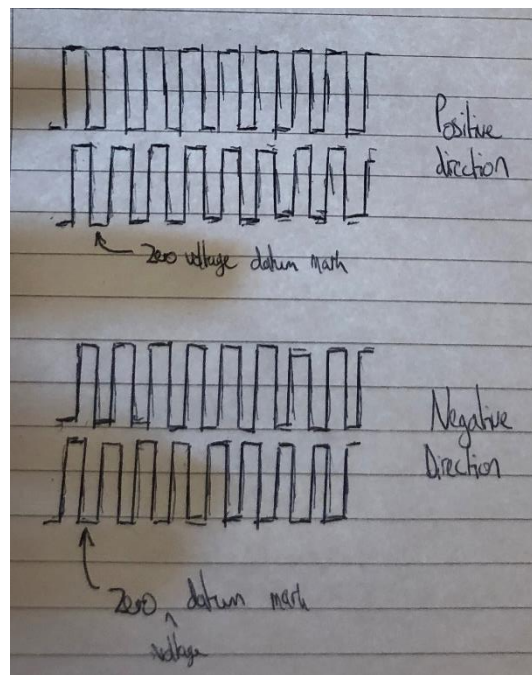 Positive
direction
Zero voltage datum mark
Negative
Direction
Zero voltage datum mark